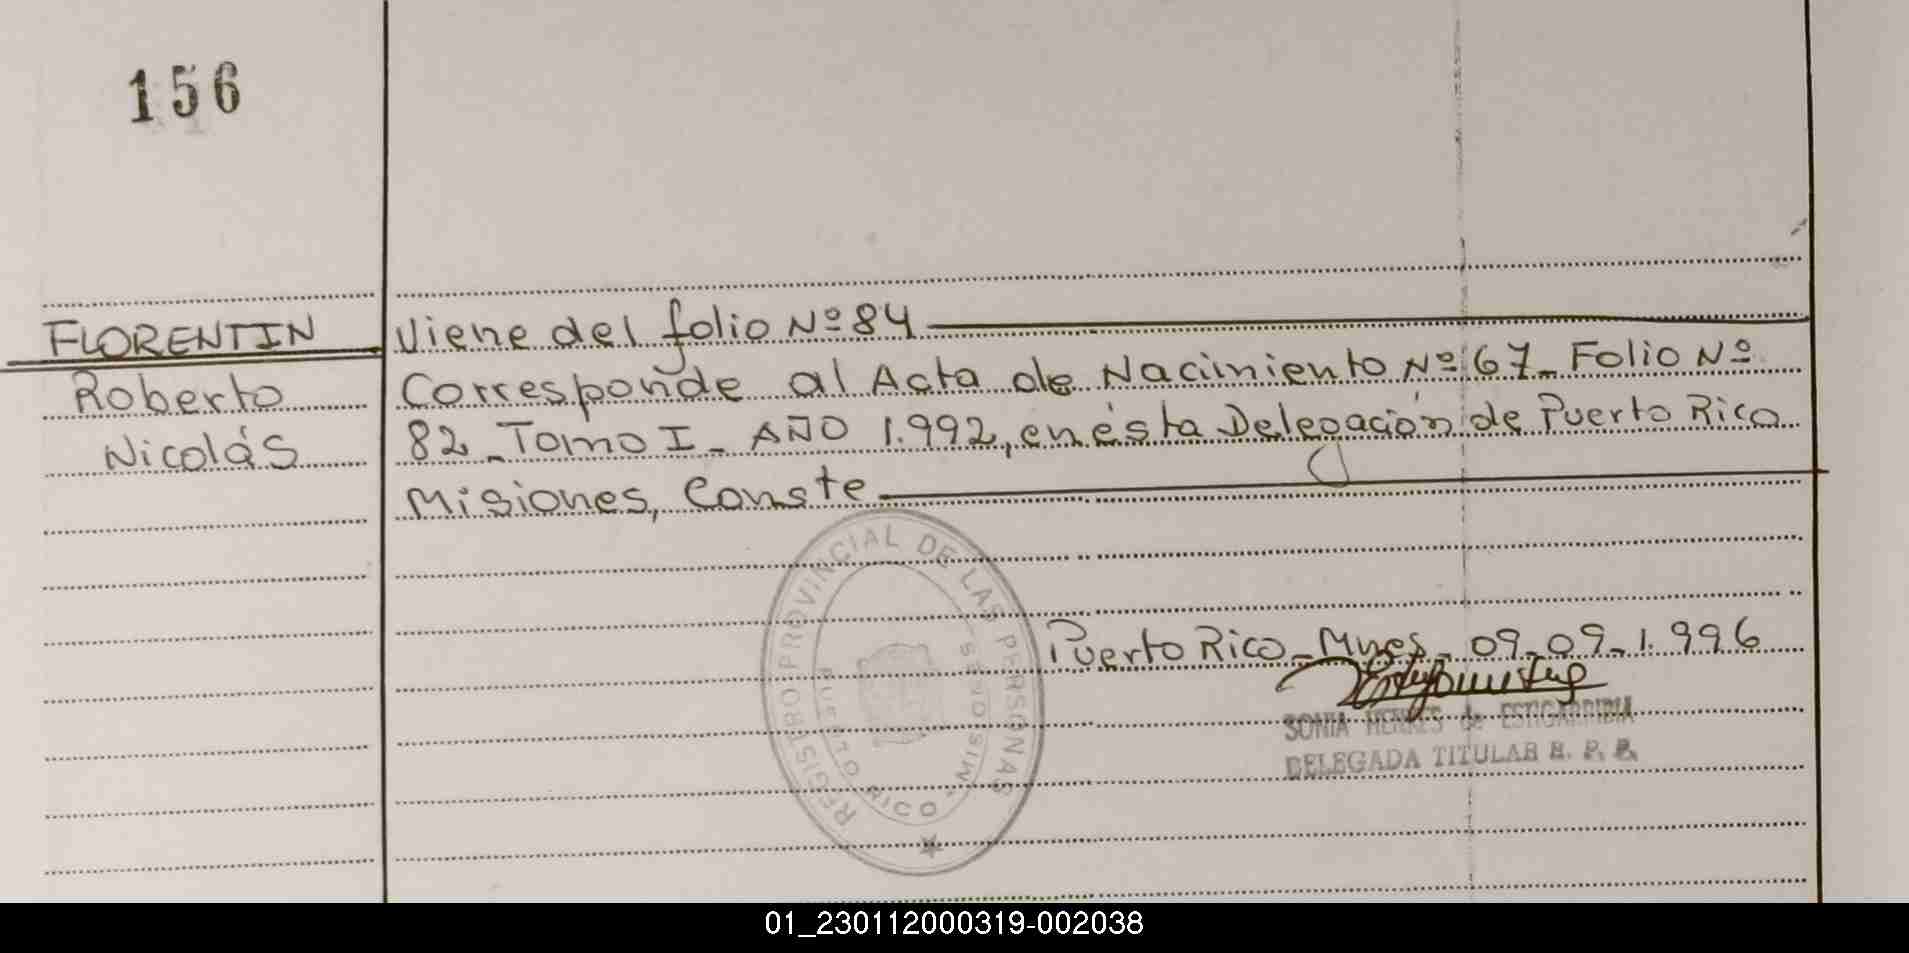 156
FLORENTIN
Roberto
Nicolás
Viene del folio Nº 84
Corresponde al Acta de Nacimiento Nº 67_ Folio Nº
82_ Tomo I_ AÑO 1.992, en ésta Delegación de Puerto Rico
Misiones, Conste
REGISTRO PROVINCIAL DE LAS PERSONAS
PUERTO RICO - MISIONES
Puerto Rico_ Mnes_ 09_09_1.996
SONIA HENKES de ESTIGARRIBIA
DELEGADA TITULAR R. P. P.
01_230112000319-002038